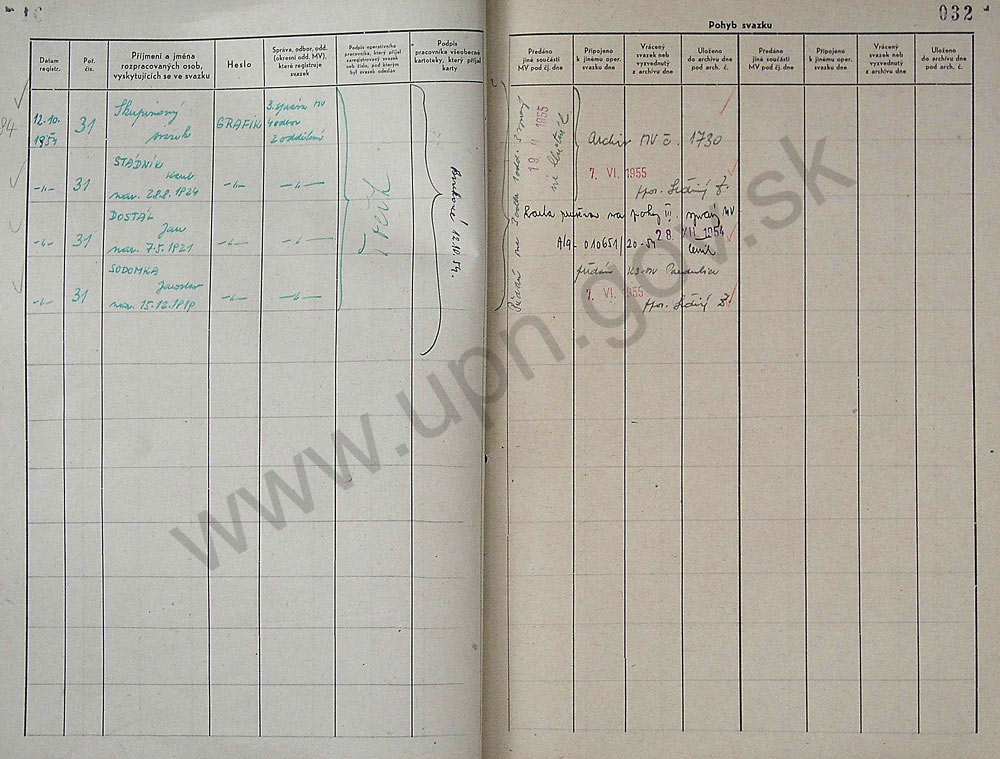 032
Pohyb svazku
Datum
registr.
Poř.
čís.
Příjmení a jména
rozpracovaných osob,
vyskytujících se ve svazku
Heslo
Správa, odbor, odd.
(okresní odd. MV),
které registruje
svazek
Podpis operativního
pracovníka, který přijal
zaregistrovaný svazek
neb číslo, pod kterým
byl svazek odeslán
Podpis
pracovníka všeobecné
kartoteky, který přijal
karty
Předáno
jiné součásti
MV pod čj. dne
Připojeno
k jinému oper.
svazku dne
Vrácený
svazek neb
vyzvednutý
z archivu dne
Uloženo
do archivu dne
pod arch. č.
Předáno
jiné součásti
MV pod čj. dne
Připojeno
k jinému oper.
svazku dne
Vrácený
svazek neb
vyzvednutý
z archivu dne
Uloženo
do archivu dne
pod arch. č.
12.10.
1954
31
Skupinový
svazek
GRAFIK
3. správa MV
4 odbor
2 oddělení
STADNÍK
Karel
nar. 28.8.1924
31
DOSTÁL
Jan
nar. 7.5.1921
31
SODOMKA
Jaroslav
nar. 15.12.1919
31
12.10.54.
18. II 1955
Archiv MV č. 1730
7. VI. 1955
na III. správy MV
A/9-010651/20-54
28. XII. 1954
předán KS-MV Pardubice
7. VI. 1955
www.upn.gov.sk